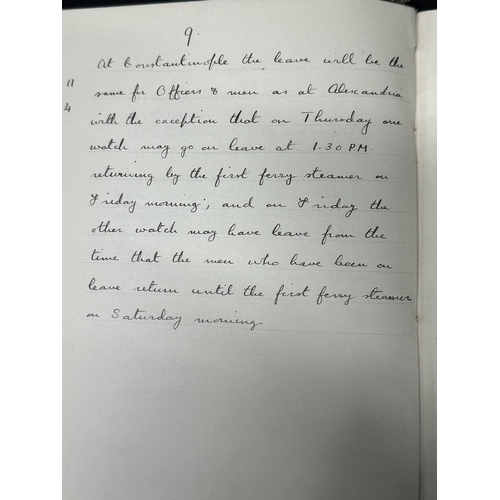 9.
At Constantinople the leave will be the
11
same for Officers & men as at Alexandria
4
with the exception that on Thursday one
watch may go on leave at 1.30 PM.
returning by the first ferry steamer on
Friday morning; and on Friday the
other watch may have leave from the
time that the men who have been on
leave return until the first ferry steamer
on Saturday morning.